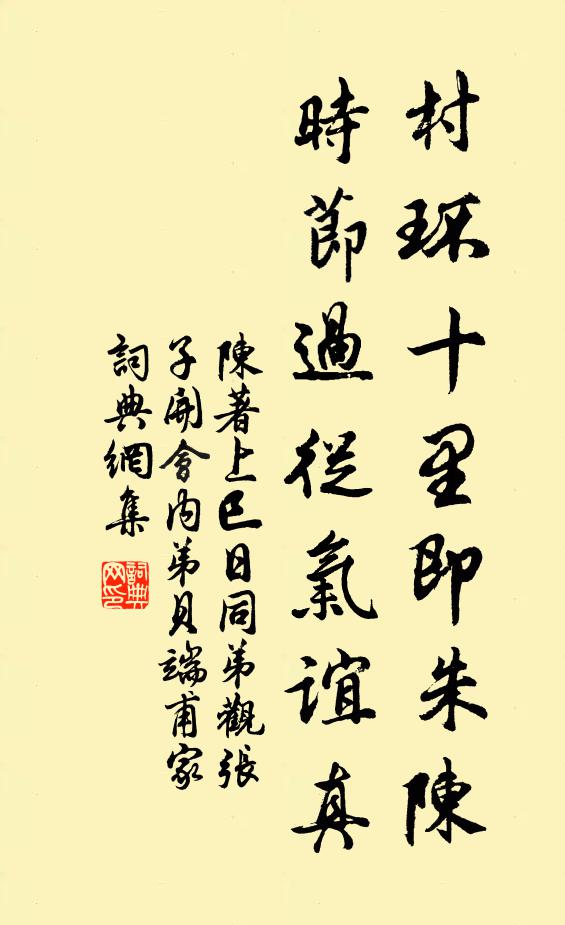 村环十里即朱陳
時節過從氣誼真
陳著上巳日同弟觀張
子開會内弟貝端甫家
詞典網集
詞典
网印